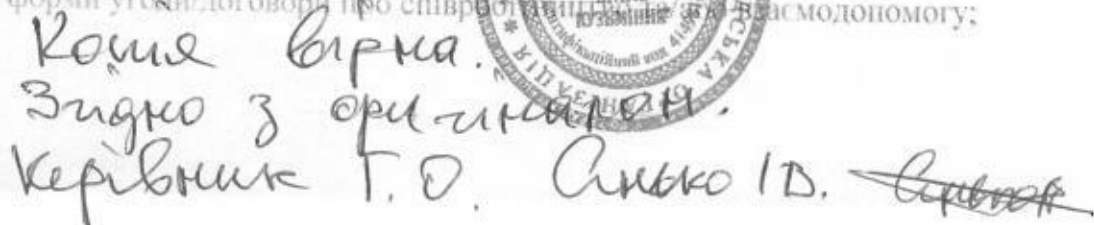 форми угоди/договори про співробітництво взаємодопомогу;
Копія вірна.
Згідно з оригіналом.
Керівник Г.О. Синько І.В.